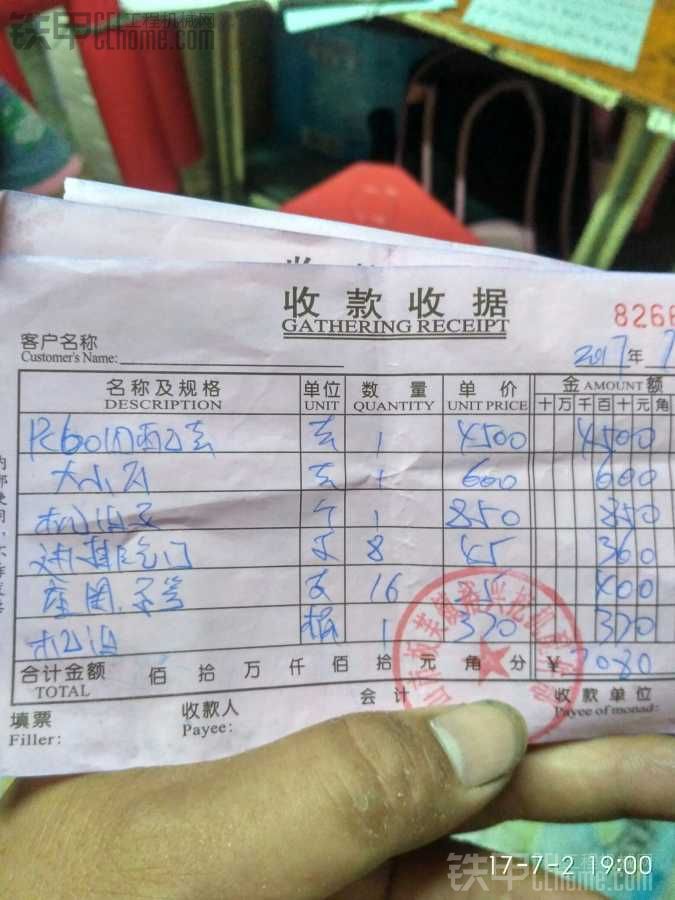 铁甲工程机械网
CEhome.com
收款收据
GATHERING RECEIPT
8266
客户名称
Customer's Name:
2017年7
名称及规格 单位 数量 单价 金 AMOUNT 额
DESCRIPTION UNIT QUANTITY UNIT PRICE 十万千百十元角
PC60 套 1 4500 4500
大小瓦 套 1 600 600
机油泵 个 1 850 850
进排气门 8 45 360
座圈.导管 支 16 25 400
机油 桶 1 370 370
合计金额 佰拾万仟佰拾元角分 ¥7080
TOTAL
填票 收款人 会计 收款单位
Filler: Payee: Payee of monad:
17-7-2 19:00
铁甲工程机械网
CEhome.com